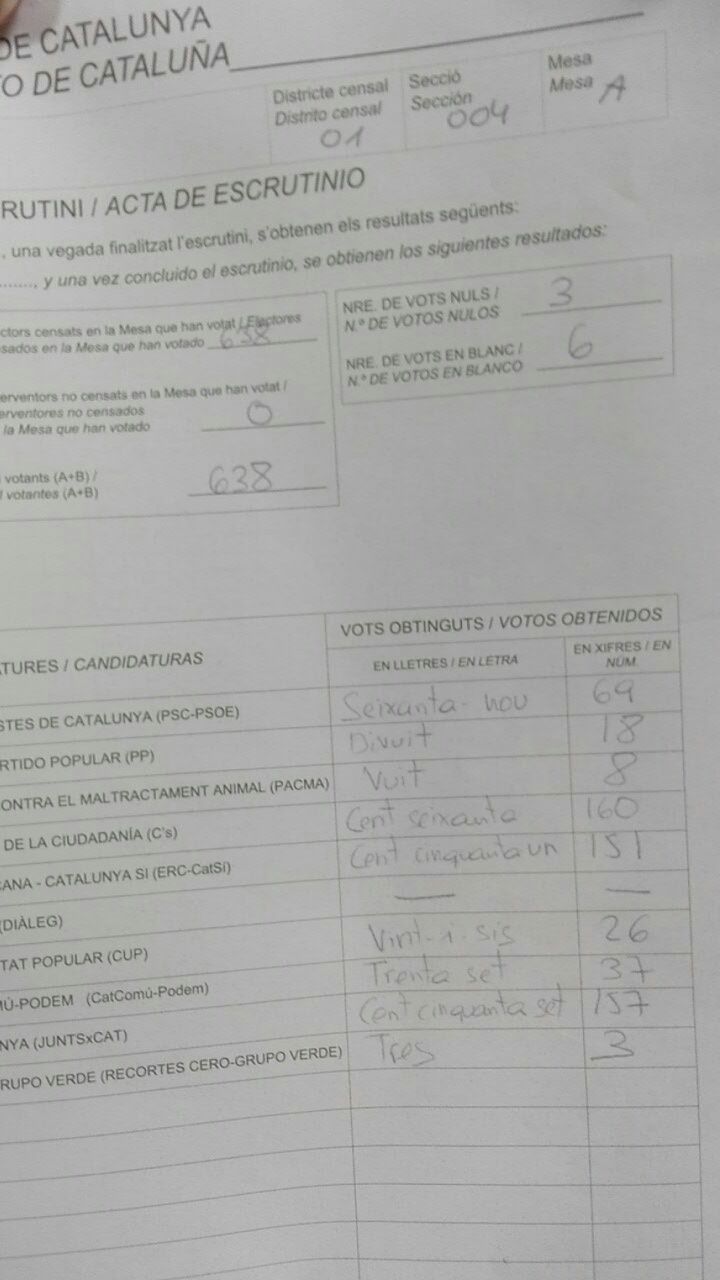 DE CATALUNYA
O DE CATALUÑA
Districte censal
Distrito censal
01
Secció
Sección
004
Mesa
Mesa A
RUTINI / ACTA DE ESCRUTINIO
, una vegada finalitzat l'escrutini, s'obtenen els resultats següents:
......., y una vez concluido el escrutinio, se obtienen los siguientes resultados:
ctors censats en la Mesa que han votat / Electores
sados en la Mesa que han votado 638
erventors no censats en la Mesa que han votat /
erventores no censados
la Mesa que han votado 0
votants (A+B) /
l votantes (A+B) 638
NRE. DE VOTS NULS /
N.º DE VOTOS NULOS 3
NRE. DE VOTS EN BLANC /
N.º DE VOTOS EN BLANCO 6
TURES / CANDIDATURAS
VOTS OBTINGUTS / VOTOS OBTENIDOS
EN LLETRES / EN LETRA
EN XIFRES / EN
NÚM.
STES DE CATALUNYA (PSC-PSOE) Seixanta-nou 69
RTIDO POPULAR (PP) Divuit 18
ONTRA EL MALTRACTAMENT ANIMAL (PACMA) Vuit 8
DE LA CIUDADANÍA (C's) Cent seixanta 160
CANA - CATALUNYA SI (ERC-CatSí) Cent cinquanta un 151
(DIÀLEG) — —
TAT POPULAR (CUP) Vint-i-sis 26
MÚ-PODEM (CatComú-Podem) Trenta set 37
NYA (JUNTSxCAT) Cent cinquanta set 157
RUPO VERDE (RECORTES CERO-GRUPO VERDE) Tres 3